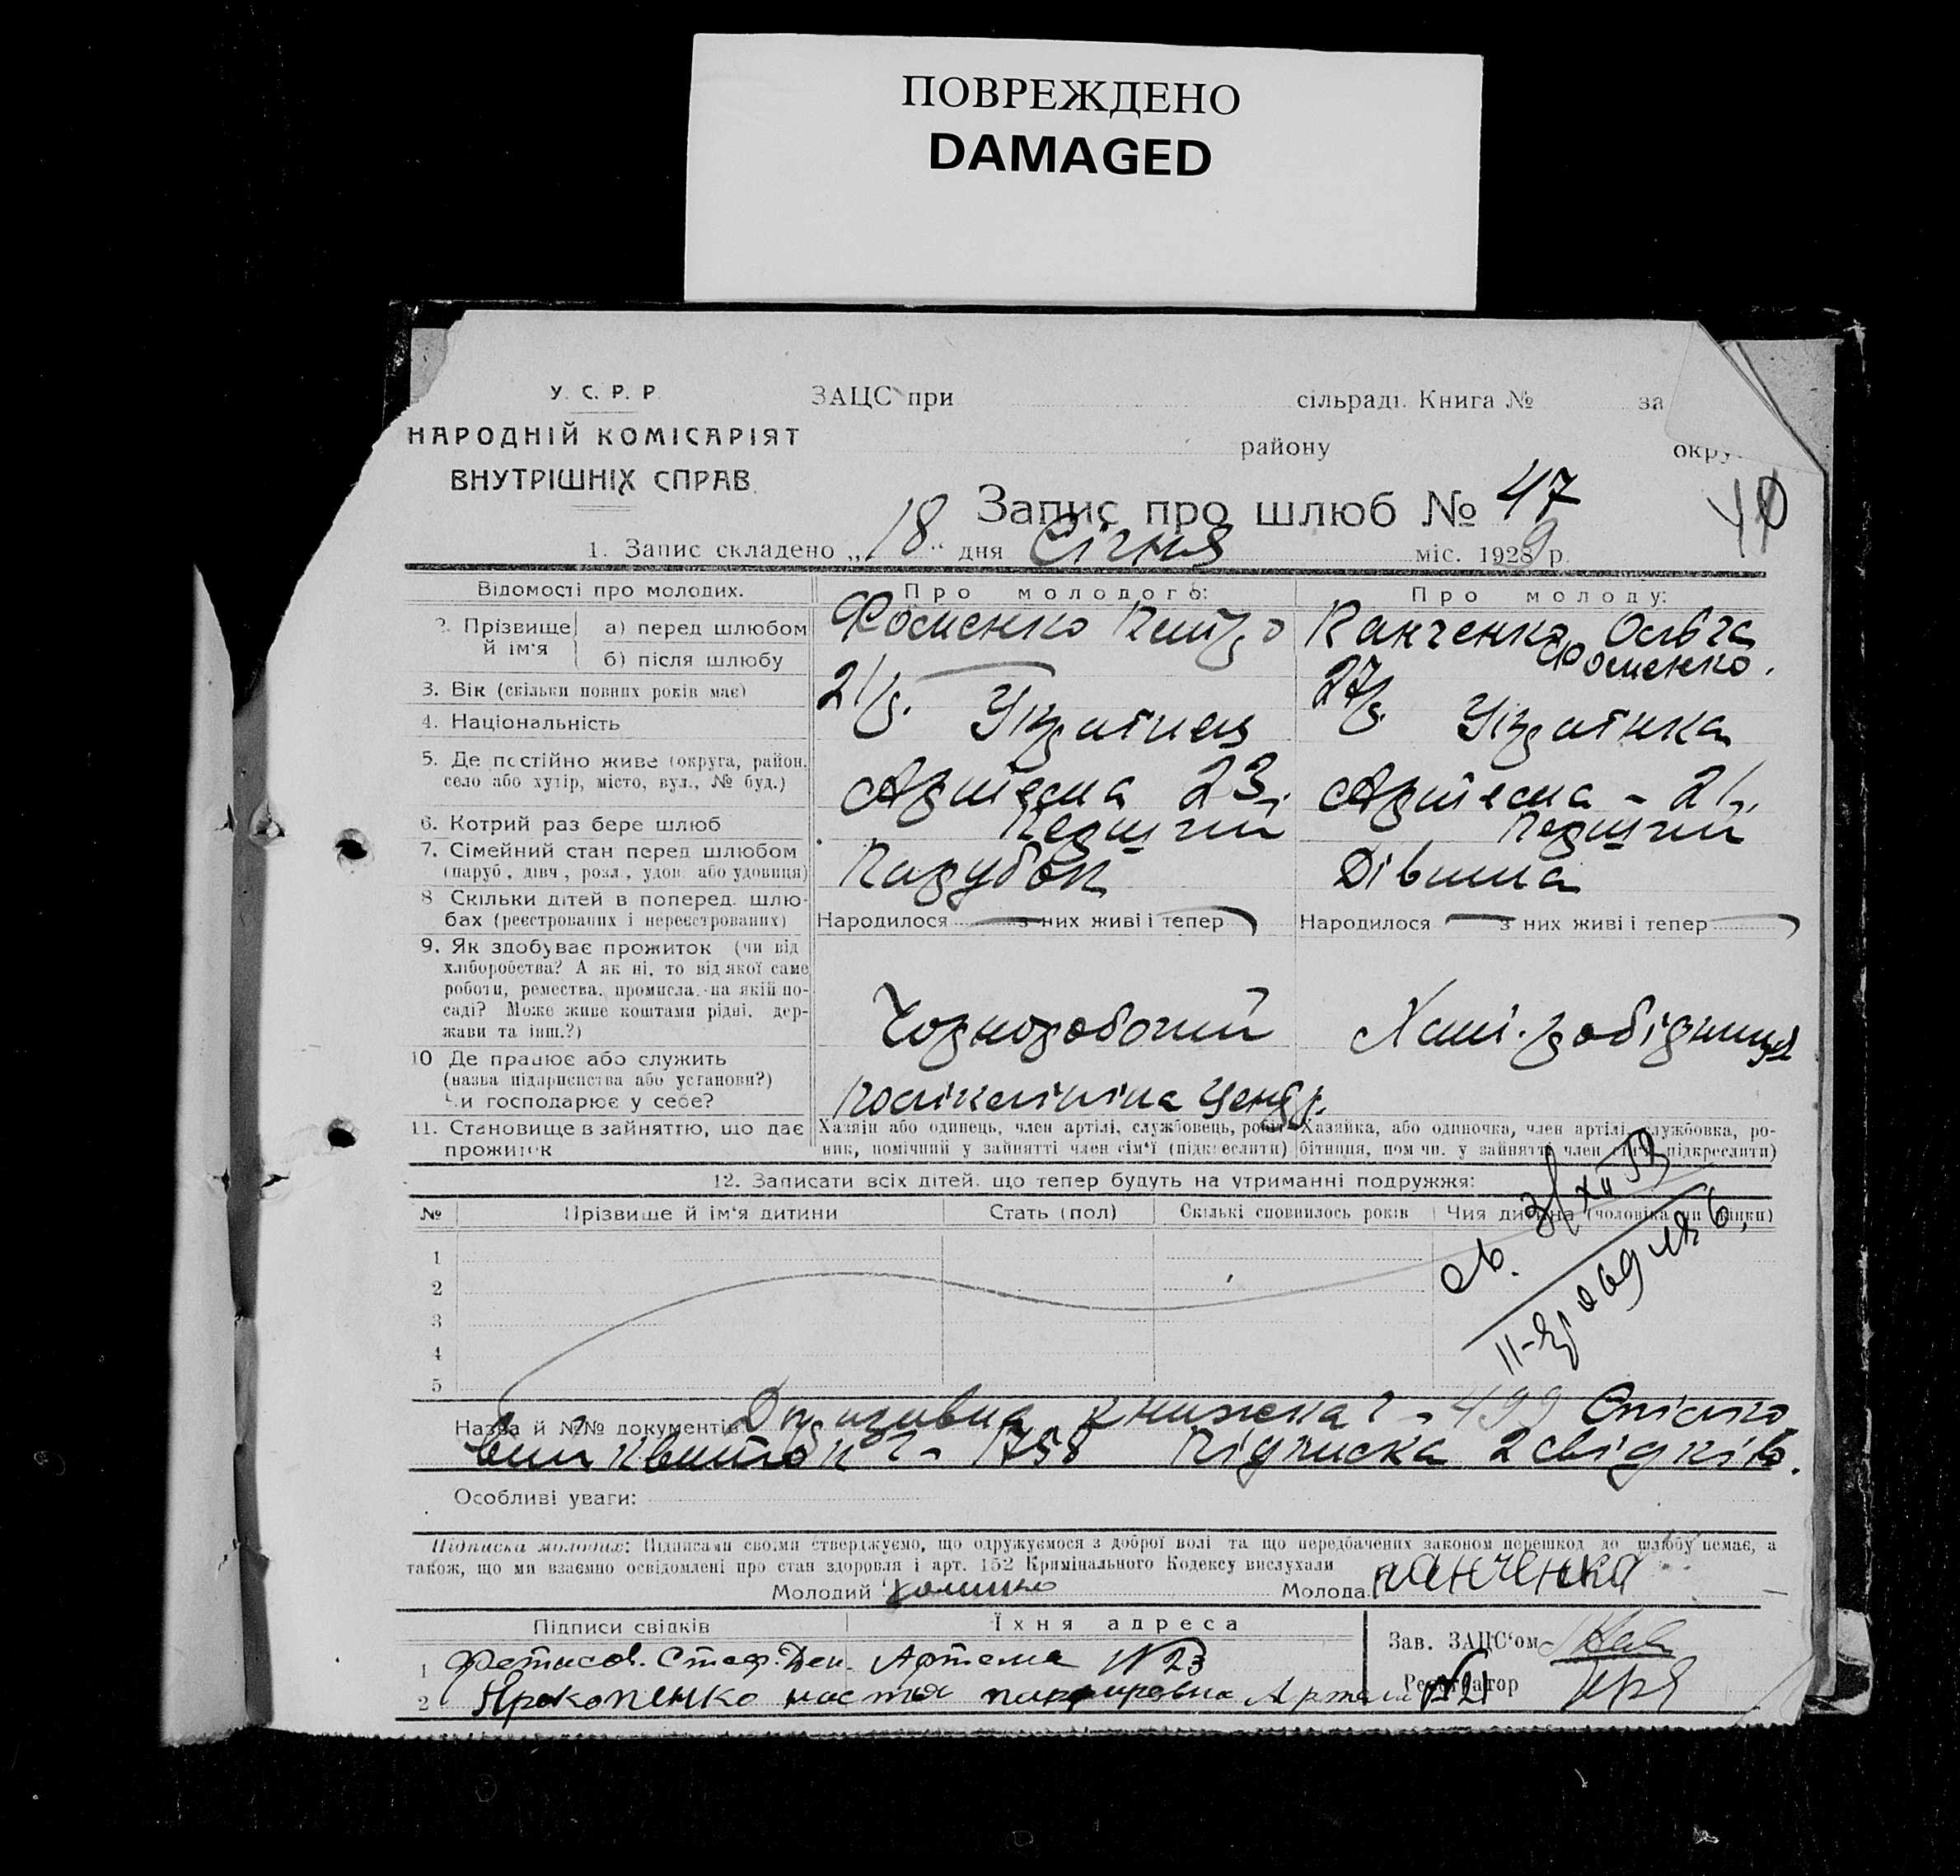 ПОВРЕЖДЕНО
DAMAGED
У. С. Р. Р.
НАРОДНІЙ КОМІСАРІЯТ
ВНУТРІШНІХ СПРАВ.
ЗАЦС при сільраді. Книга № за
району окру
Запис про шлюб № 47
40
1. Запис складено „18“ дня Січня міс. 1929 р.
Відомості про молодих. Про молодого: Про молоду:
2. Прізвище й ім‘я а) перед шлюбом Фоменко Петро Панченко Ольга
б) після шлюбу Фоменко.
3. Вік (скільки повних років має) 21/р. 27/р.
4. Національність Українец Українка
5. Де постійно живе (округа, район, село або хутір, місто, вул., № буд.) Артема 23. Артема - 21.
6. Котрий раз бере шлюб Перший Перший
7. Сімейний стан перед шлюбом (паруб., дівч., розл., удов. або удовиця) Парубок Дівчина
8 Скільки дітей в поперед. шлюбах (реєстрованих і нереєстрованих) Народилося з них живі і тепер Народилося з них живі і тепер
9. Як здобуває прожиток (чи від хліборобства? А як ні, то від якої саме роботи, ремества, промисла, на якій посаді? Може живе коштами рідні, держави та інш.?) Чорноробочий Хат. робідниця
10 Де працює або служить (назва підприємства або установи?) Чи господарює у себе? поліклініка Центр.
11. Становище в зайняттю, що дає прожиток Хазяїн або одинець, член артілі, службовець, робітник, помічний у зайнятті член сім‘ї (підкреслити) Хазяйка, або одиночка, член артілі, службовка, робітниця, помічн. у зайнятті член сім‘ї (підкреслити)
12. Записати всіх дітей, що тепер будуть на утриманні подружжя:
№ Прізвище й ім‘я дитини Стать (пол) Скількі сповнилось років Чия дитина (чоловіка чи жінки)
1
2
3
4
5
Назва й №№ документів Призивна книжка - 499 Спілко
вий квиток - 1758 Підписка 2 свідків.
Особливі уваги:
Підписка молодих: Підписами своїми стверджуємо, що одружуємося з доброї волі та що передбачених законом перешкод до шлюбу немає, а
також, що ми взаємно освідомлені про стан здоровля і арт. 152 Крімінального Кодексу вислухали
Молодий Молода Панченко
Підписи свідків Їхня адреса
1 Фетисов. Стеф. Ден. Артема № 23
2 Прокопенко настя порфировна Артема №21
Зав. ЗАЦС‘ом
Реєстратор